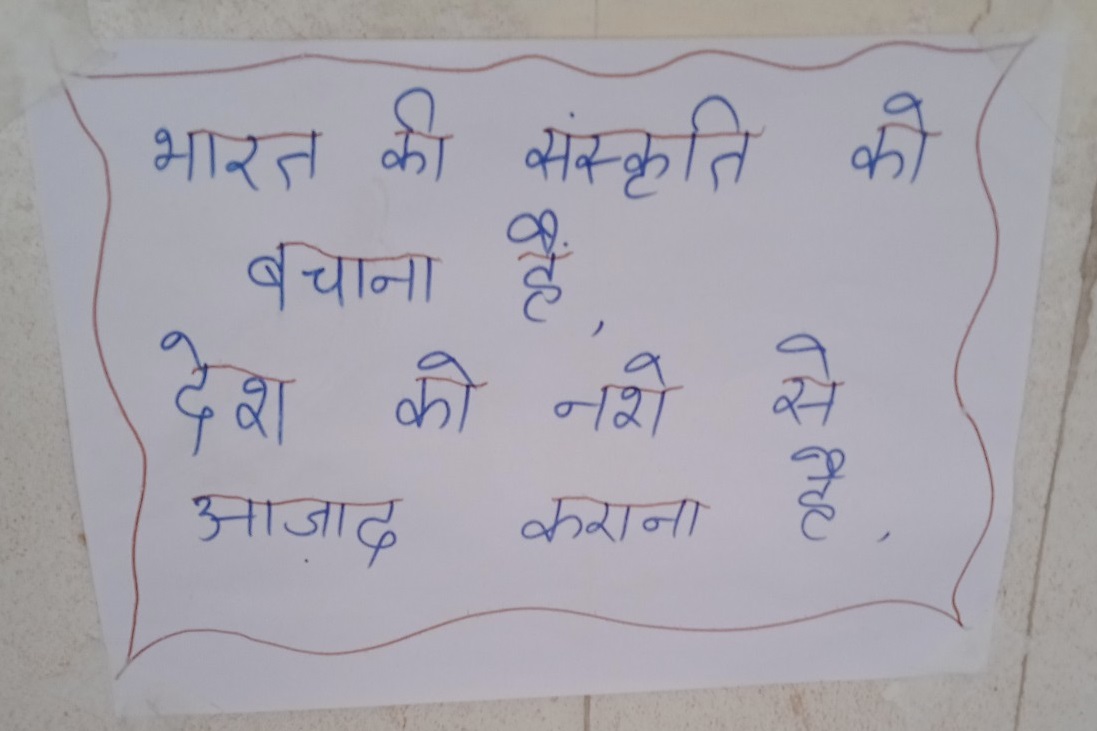 भारत की संस्कृति को
बचाना हैं,
देश को नशे से
आजाद कराना है,